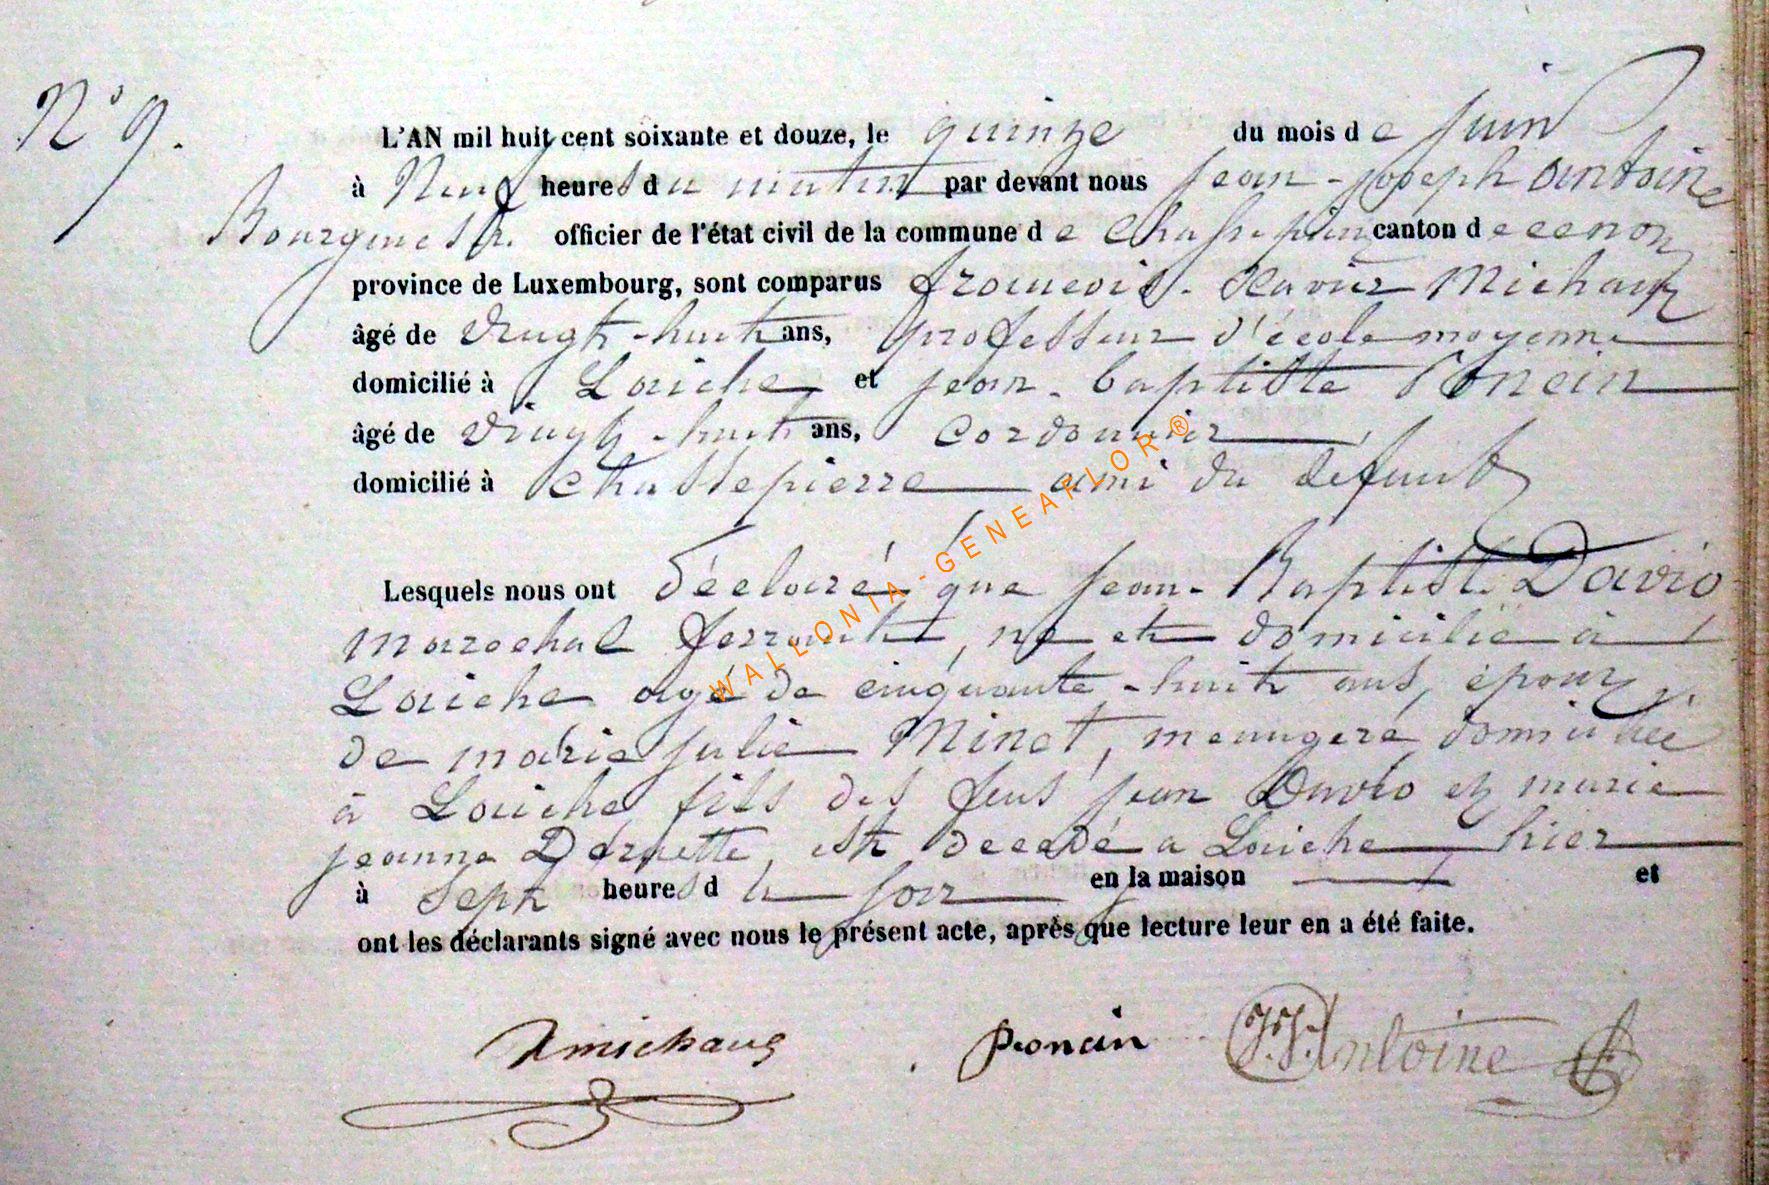 N° 9.
L'AN mil huit cent soixante et douze, le quinze du mois de juin
à Neuf heures du matin par devant nous jean-joseph antoine
Bourgmestre. officier de l'état civil de la commune de Chassepierre canton de
province de Luxembourg, sont comparus francois-Xavier Michaux
âgé de vingt-huit ans, professeur d'école moyenne
domicilié à Laiche et jean-baptiste Poncin
âgé de vingt-huit ans, cordonnier
domicilié à Chassepierre ami du defunt
Lesquels nous ont déclaré que jean-Baptiste David
marechal ferrant, né et domicilié à
Laiche agé de cinquante-huit ans, époux
de marie julie Minet, menagere domiciliée
à Laiche fils des feus jean David et marie
jeanne, est decedé a Laiche hier
à sept heures du soir en la maison et
ont les déclarants signé avec nous le présent acte, après que lecture leur en a été faite.
Xmichaux Poncin J.J. Antoine
WALLONIA-GENEAFLOR ®